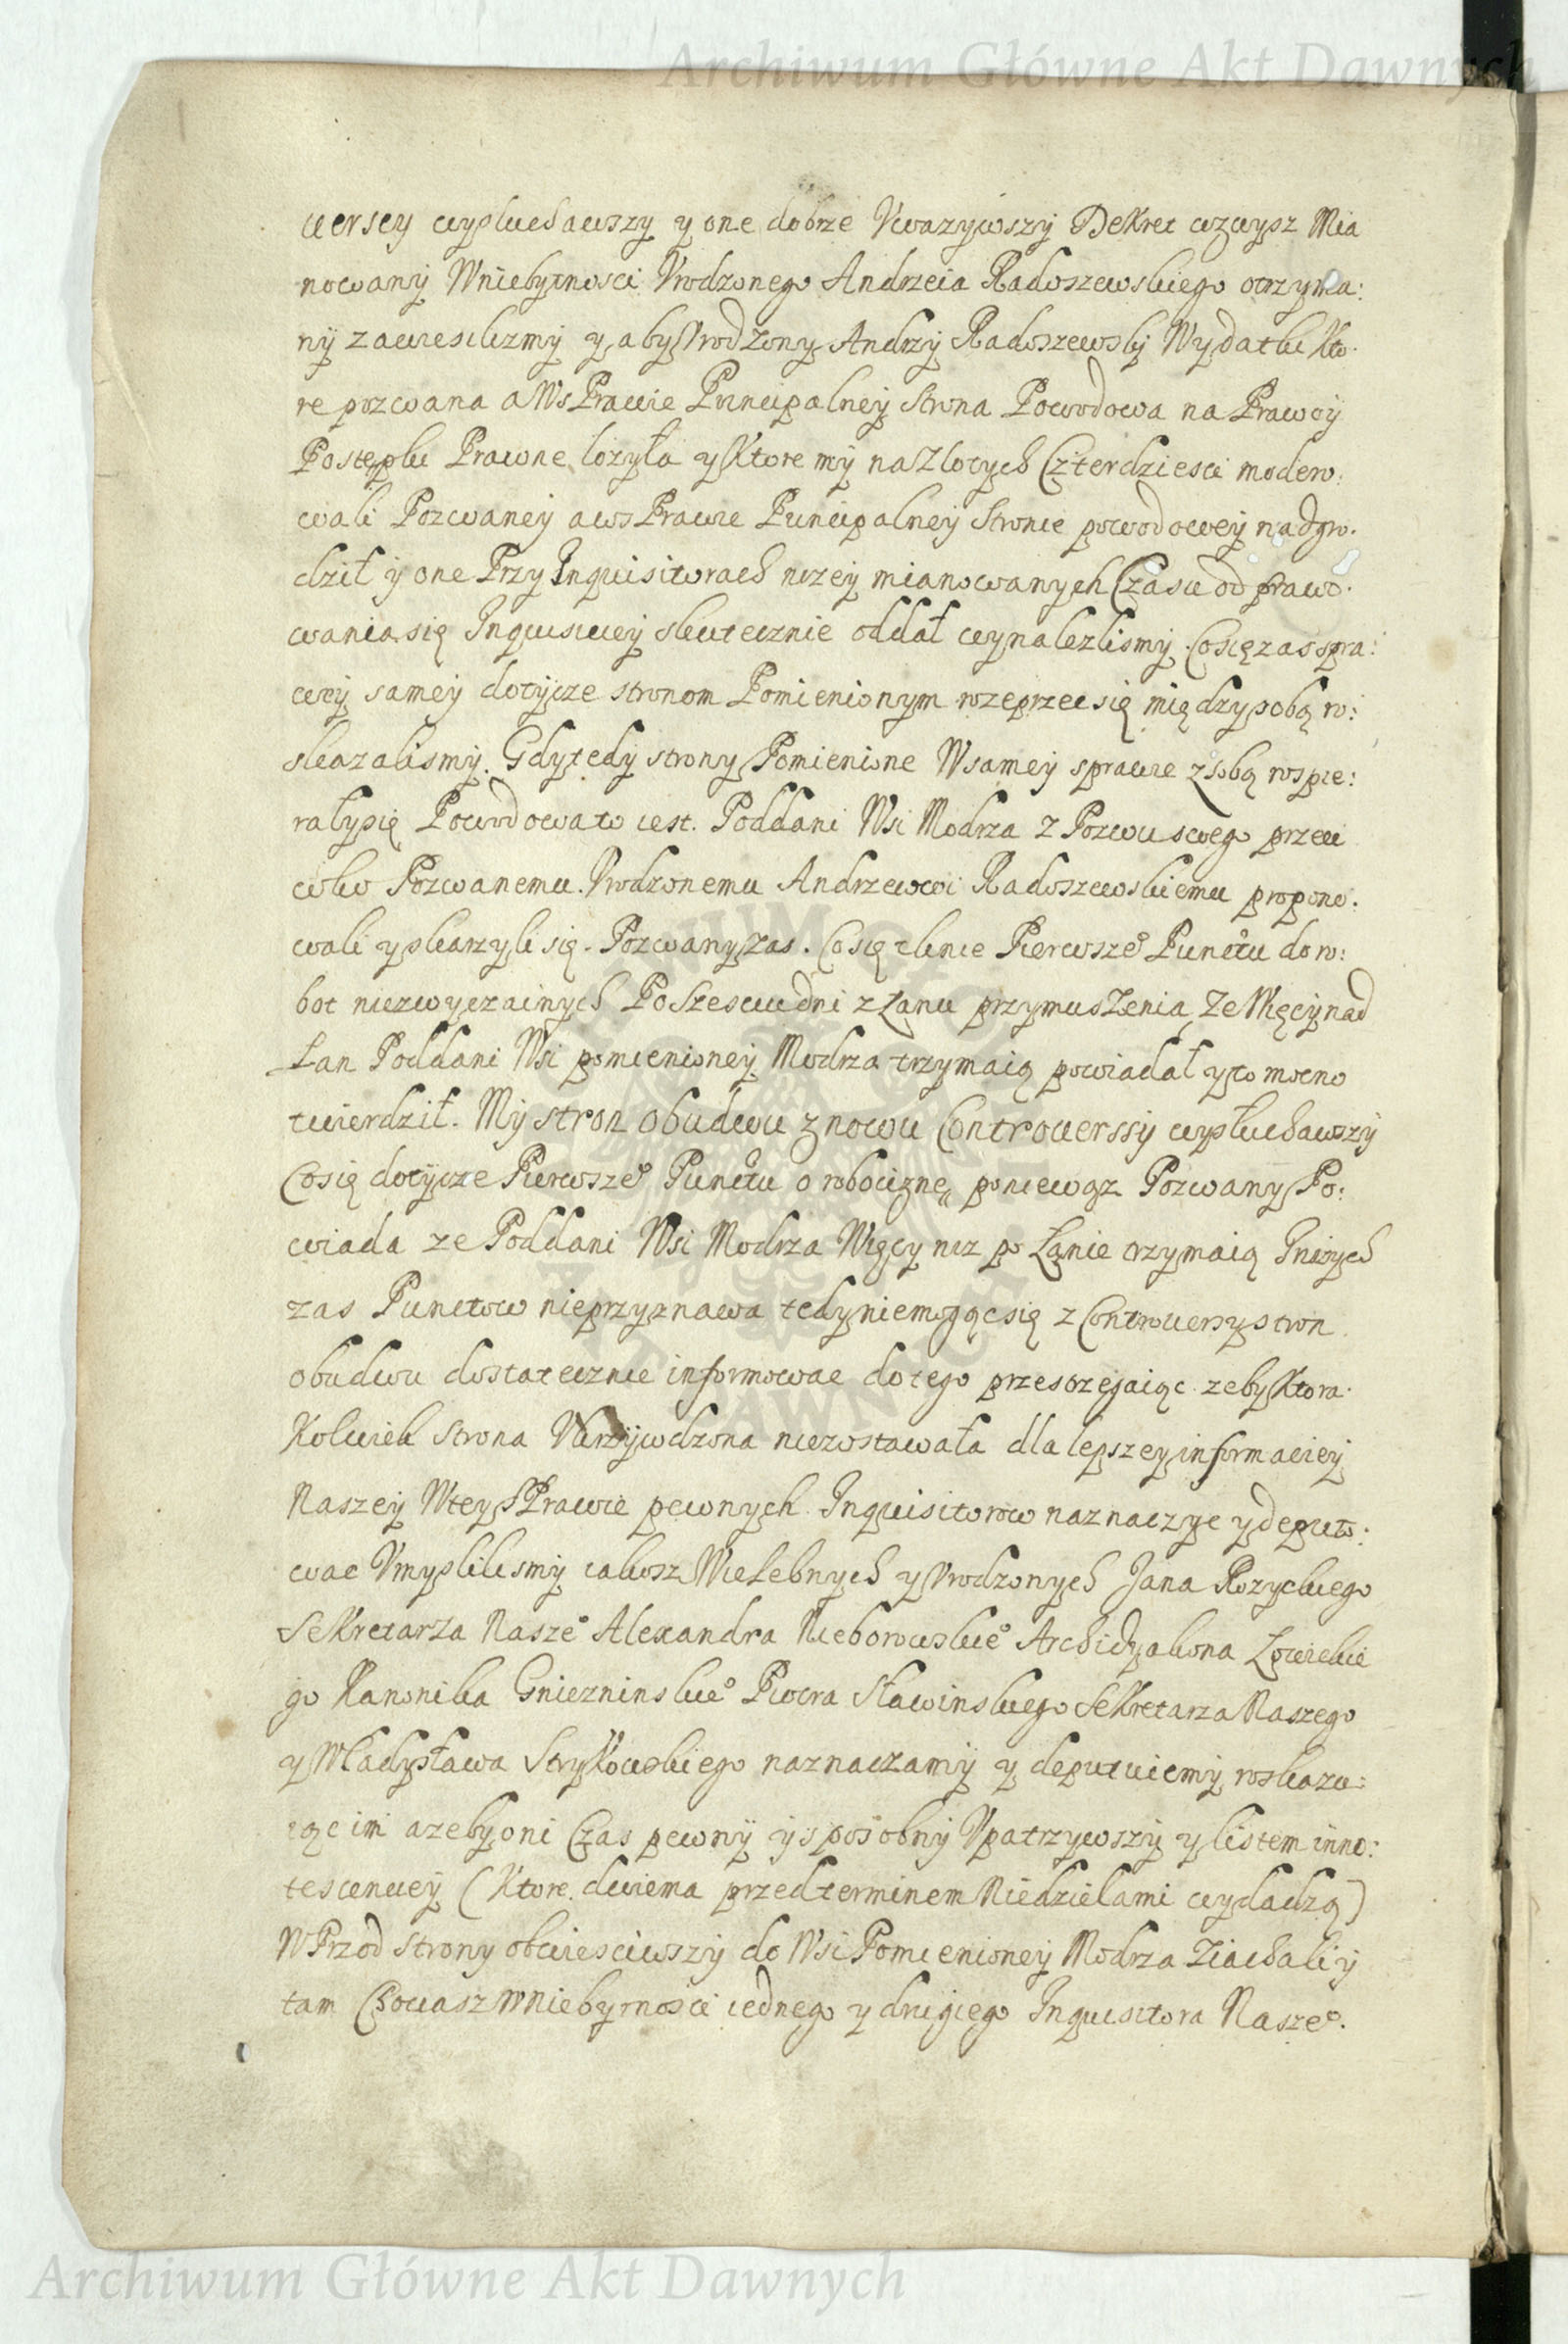 Archiwum Główne Akt Dawnych
wersey wysłuchawszy y one dobrze Vwazywszy Dekret wzwysz Mia
nowany Wniebytnosci Vrodzonego Andrzeia Radoszewskiego otrzyma:
ny zawiesilizmy y aby Vrodzony Andrzy Radoszewsky Wydatki Kto.
re pozwana a Ws Prawie Principalney Strona Powodowa na Prawoy
Postępki Prawne lozyła y Ktore my na Zlotych Czterdziesci modero:
wali Pozwaney aws Prawie Principalney Stronie powodowey nadgro.
dził y one Przy Inquisitorach nizey mianowanych Czasu od prawo.
wania się Inquisiciey skutecznie oddał wynalezlismy. Co się zas spra:
wey samey dotycze stronom Pomienionym rozeprzec się między sobą ro:
skazalismy. Gdy tedy strony Pomienione W samey sprawie z sobą rospie:
rały się Powodowa to iest. Poddani Wsi Modrza z Pozwu swego przeci
wko Pozwanemu. Vrodzonemu Andrzeiowi Radoszewskiemu propono.
wali y skarzyli się. Pozwany zas. Co się tknie Pierwsze° Punctu do ro:
bot niezwyczainych Po Szesciu dni z Łanu przymuszenia, ze Więcy nad
Łan Poddani Wsi pomienioney Modrza trzymaią powiadał y to mocno
twierdził. My stron obudwu znowu Controuerssy wysłuchawszy
Co się dotycze Pierwsze° Punctu o robociznę poniewaz Pozwany Po:
wiada ze Poddani Wsi Modrza Więcy niz po Łanie trzymaią Innych
zas Punctow nieprzyznawa tedy niemogąc się z Controuersy stron
obudwu dostatecznie informowac do tego przestrzegaiąc zeby Ktora.
Kolwiek Strona Vkrzywdzona niezostawała dla lepszey informaciey
Naszey Wtey S Prawie pewnych Inquisitorow naznaczyc y deputo:
wac Vmyslilismy iakosz Wielebnych y Vrodzonych Jana Rozyckiego
Sekretarza Nasze° Alexandra Nieborowskie° Archidyakona Łowickie
go Kanonika Gniezninskie° Piotra Sławinskiego Sekretarza Naszego
y Władysława Strykowskiego naznaczamy y deputuiemy roskazu:
iąc im azeby oni Czas pewny y sposobny Vpatrzywszy y listem inno:
tescenciey (Ktore. dwiema przed terminem Niedzielami wydadzą)
W Przod strony obwiesciwszy do Wsi Pomienioney Modrza Ziachali y
tam Chociasz w niebytnosci iednego y drugiego Inquisitora Nasze°.
Archiwum Główne Akt Dawnych